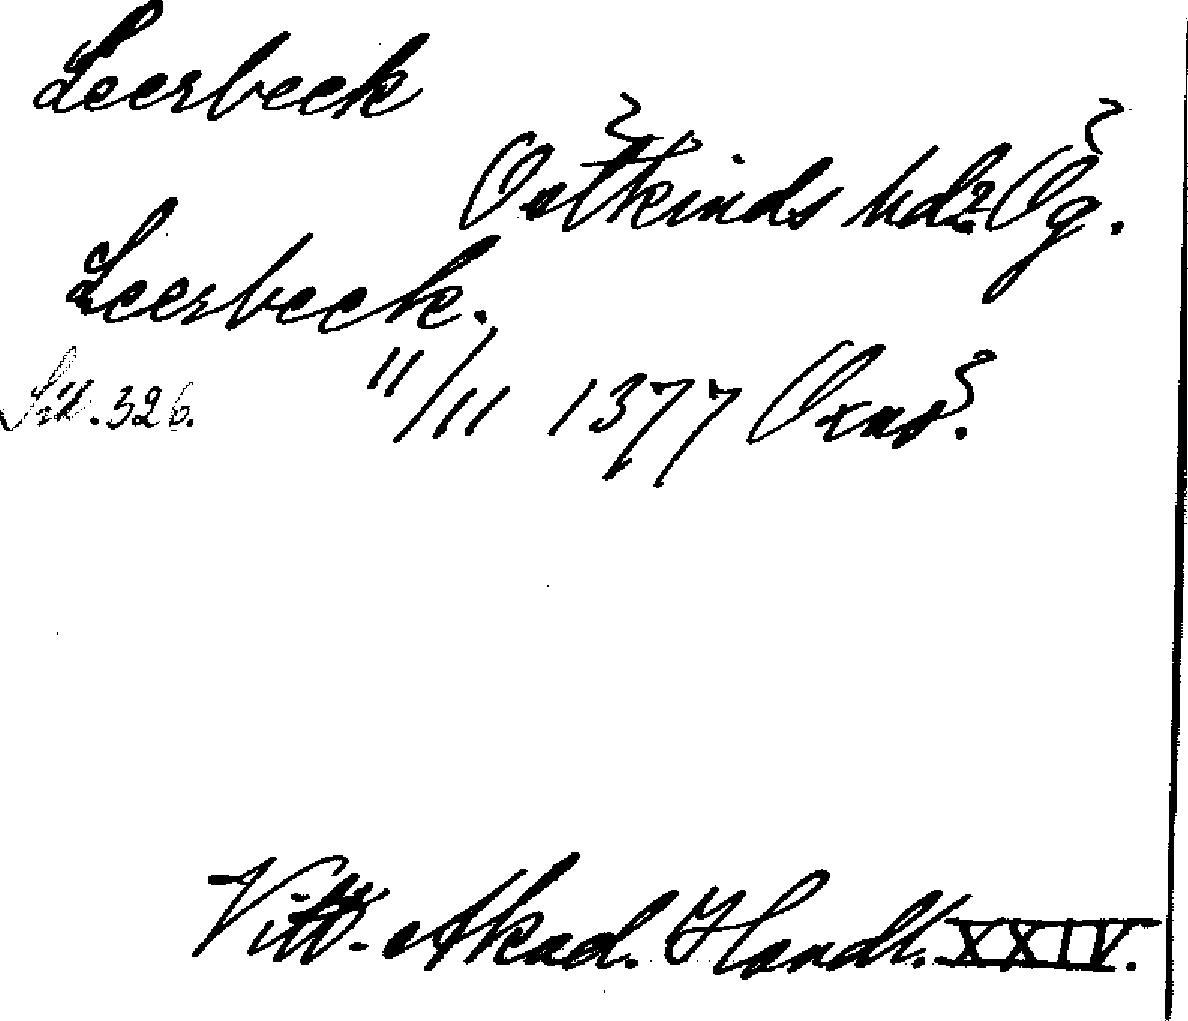 Leerbeck
Östkinds hd. Ög.
Leerbeck.
Sid. 326. 11/11 1377
Vitt. Akad. Handl. XXIV.